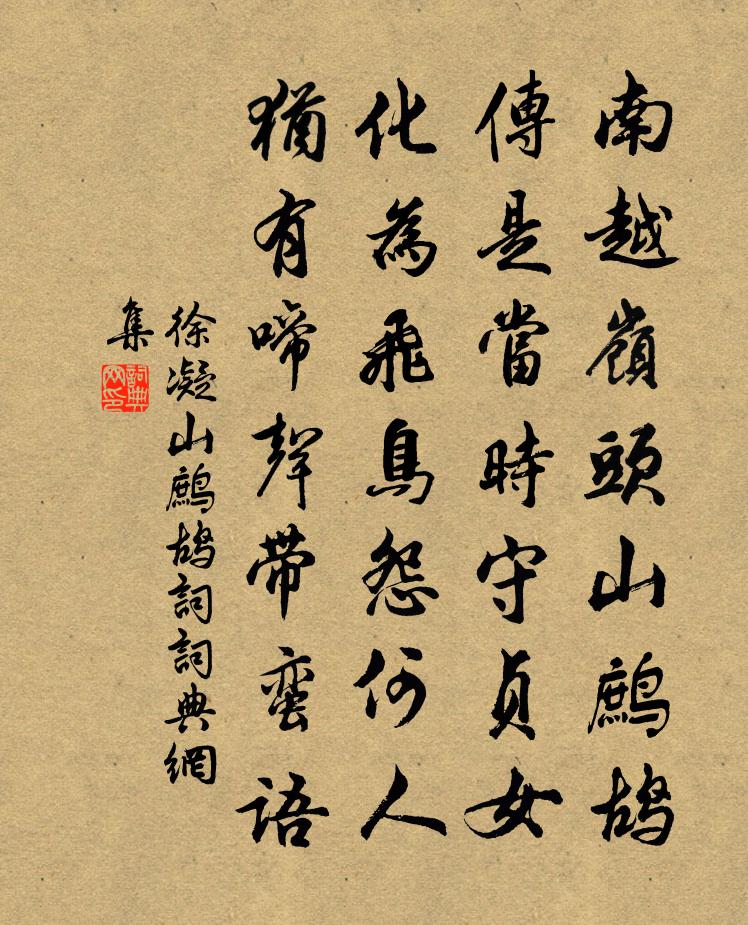 南越嶺頭山鷓鴣
傳是當時守貞女
化為飛鳥怨何人
猶有啼聲帶蛮語
徐凝山鷓鴣詞詞典網
集
詞典
网印